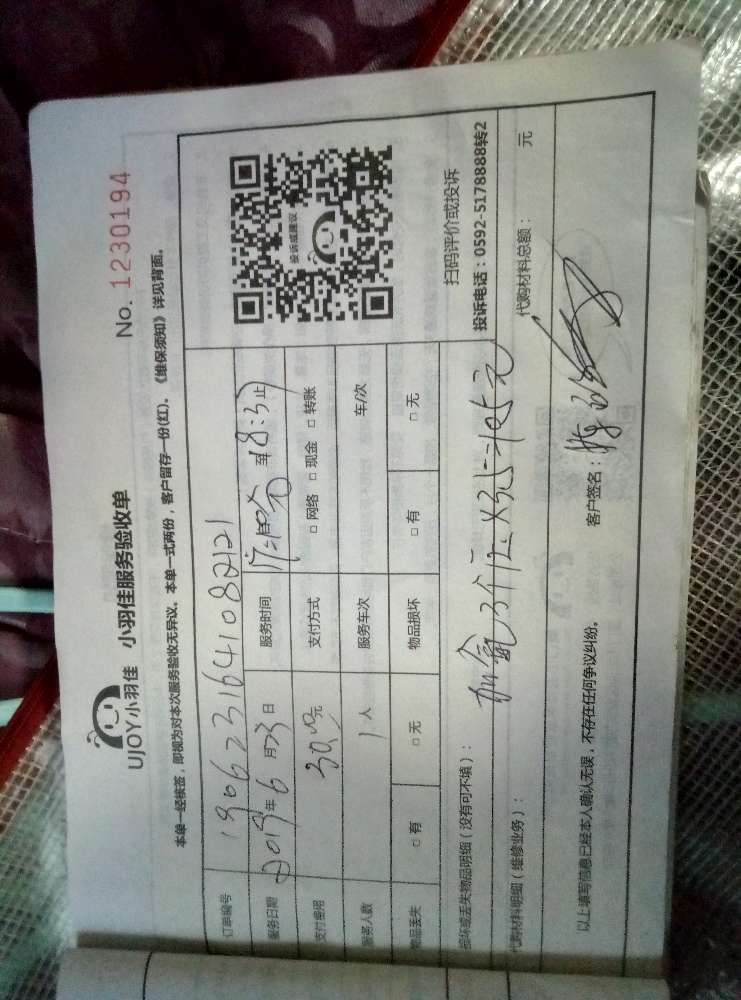 UJOY小羽佳 小羽佳服务验收单
No. 1230194
本单一经核签，即视为对本次服务验收无异议。本单一式两份，客户留存一份(红)。《维保须知》详见背面。
订单编号 1906231641082121
服务日期 2019年6月23日 服务时间 至18:37止
支付费用 30.00元 支付方式 □网络 □现金 □转账
服务人数 1人 服务车次 车/次
物品丢失 □有 □无 物品损坏 □有 □无
投诉或建议
扫码评价或投诉
投诉电话：0592-5178888转2
损坏或丢失物品明细（没有可不填）：
代购材料明细（维修业务）：
加氟3个压×35=105元
代购材料总额： 元
以上填写信息已经本人确认无误，不存在任何争议纠纷。 客户签名：